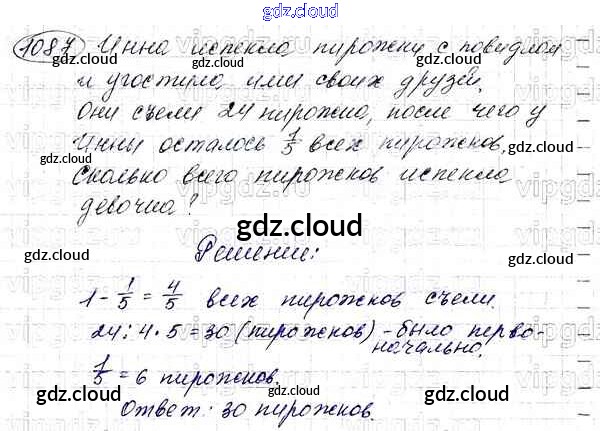 gdz.cloud
1087 Инна испекла пирожки с повидлом
и угостила ими своих друзей.
gdz.cloud gdz.cloud
Они съели 24 пирожка, после чего у
Инны осталось 1/5 всех пирожков,
gdz.cloud gdz.cloud
Сколько всего пирожков испекла
девочка?
gdz.cloud
Решение:
gdz.cloud gdz.cloud
1 - 1/5 = 4/5 всех пирожков съели.
24 : 4 · 5 = 30 (пирожков) - было перво-
начально.
1/5 = 6 пирожков.
gdz.cloud gdz.cloud
Ответ: 30 пирожков.
gdz.cloud